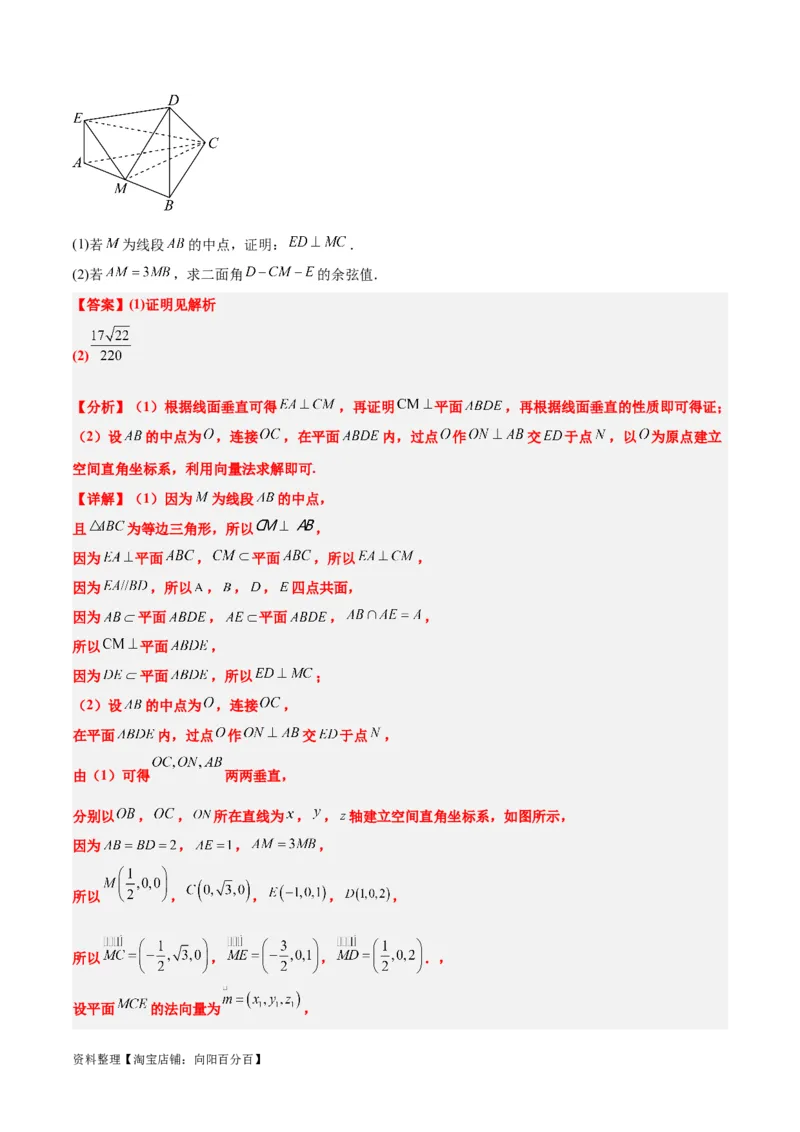 D
E
C
A
M
B
(1)若 M 为线段 AB 的中点，证明：ED ⊥ MC．
(2)若 AM = 3MB，求二面角 D－CM－E 的余弦值．
【答案】(1)证明见解析
(2) 17√22/220
【分析】（1）根据线面垂直可得 EA ⊥ CM，再证明 CM ⊥ 平面 ABDE，再根据线面垂直的性质即可得证；
（2）设 AB 的中点为 O，连接 OC，在平面 ABDE 内，过点 O 作 ON ⊥ AB 交 ED 于点 N，以 O 为原点建立
空间直角坐标系，利用向量法求解即可.
【详解】（1）因为 M 为线段 AB 的中点，
且 △ABC 为等边三角形，所以 CM ⊥ AB，
因为 EA ⊥ 平面 ABC，CM ⊂ 平面 ABC，所以 EA ⊥ CM，
因为 EA//BD，所以 A，B，D，E 四点共面，
因为 AB ⊂ 平面 ABDE，AE ⊂ 平面 ABDE，AB ∩ AE = A，
所以 CM ⊥ 平面 ABDE，
因为 DE ⊂ 平面 ABDE，所以 ED ⊥ MC；
（2）设 AB 的中点为 O，连接 OC，
在平面 ABDE 内，过点 O 作 ON ⊥ AB 交 ED 于点 N，
由（1）可得 OC, ON, AB 两两垂直，
分别以 OB，OC，ON 所在直线为 x，y，z 轴建立空间直角坐标系，如图所示，
因为 AB = BD = 2，AE = 1，AM = 3MB，
所以 M(1/2,0,0)，C(0,√3,0)，E(−1,0,1)，D(1,0,2)，
所以 MC = (−1/2,√3,0)，ME = (−3/2,0,1)，MD = (1/2,0,2)．，
设平面 MCE 的法向量为 m = (x₁,y₁,z₁)，
资料整理【淘宝店铺：向阳百分百】